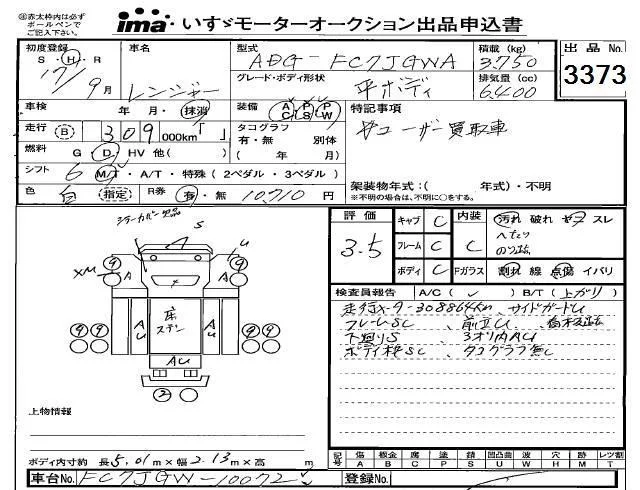 ㊟赤太枠内は必ず
ボールペンで
ご記入下さい。
ima いすゞモーターオークション出品申込書
初度登録 車名 型式 積載(kg) 出品No.
S・H・R ADG-FC7JGWA 3750 3373
17/9月 レンジャー グレード・ボディ形状 排気量(cc)
平ボディ 6400
車検 年・月・抹消 装備 AC PS PW 特記事項
走行 B 309000km タコグラフ ユーザー買取車
有・無 別体
燃料 G・D・HV 他( ) ( 年 月)
シフト 6 M/T・A/T・特殊(2ペダル・3ペダル) 架装物年式:( 年式)・不明
色 白 指定 R券 有・無 10710円 ※不明の場合は、不明に○をする。
評価 キャブ C 内装 汚れ 破れ ヤブ スレ
3.5 フレーム C C へたり
ボディ C Fガラス 割れ 線 点傷 イバリ
S
U
XM A A
床
ステン
A U A U
AU
検査員報告 A/C( ✓ ) B/T(上がり)
走行メーター308864km、サイドガードU
フレームSC、前立U
下廻りS 3オリ内AU
ボディ枠SC、タコグラフ無し
上物情報
ボディ内寸約 長5.01m×幅2.13m×高 m
記号 傷 板金 腐 塗 錆 凹凸曲 波 穴 欠 跡 レツ割
A B C P S U W H M X T
車台No. FC7JGW-10072
登録番号No.